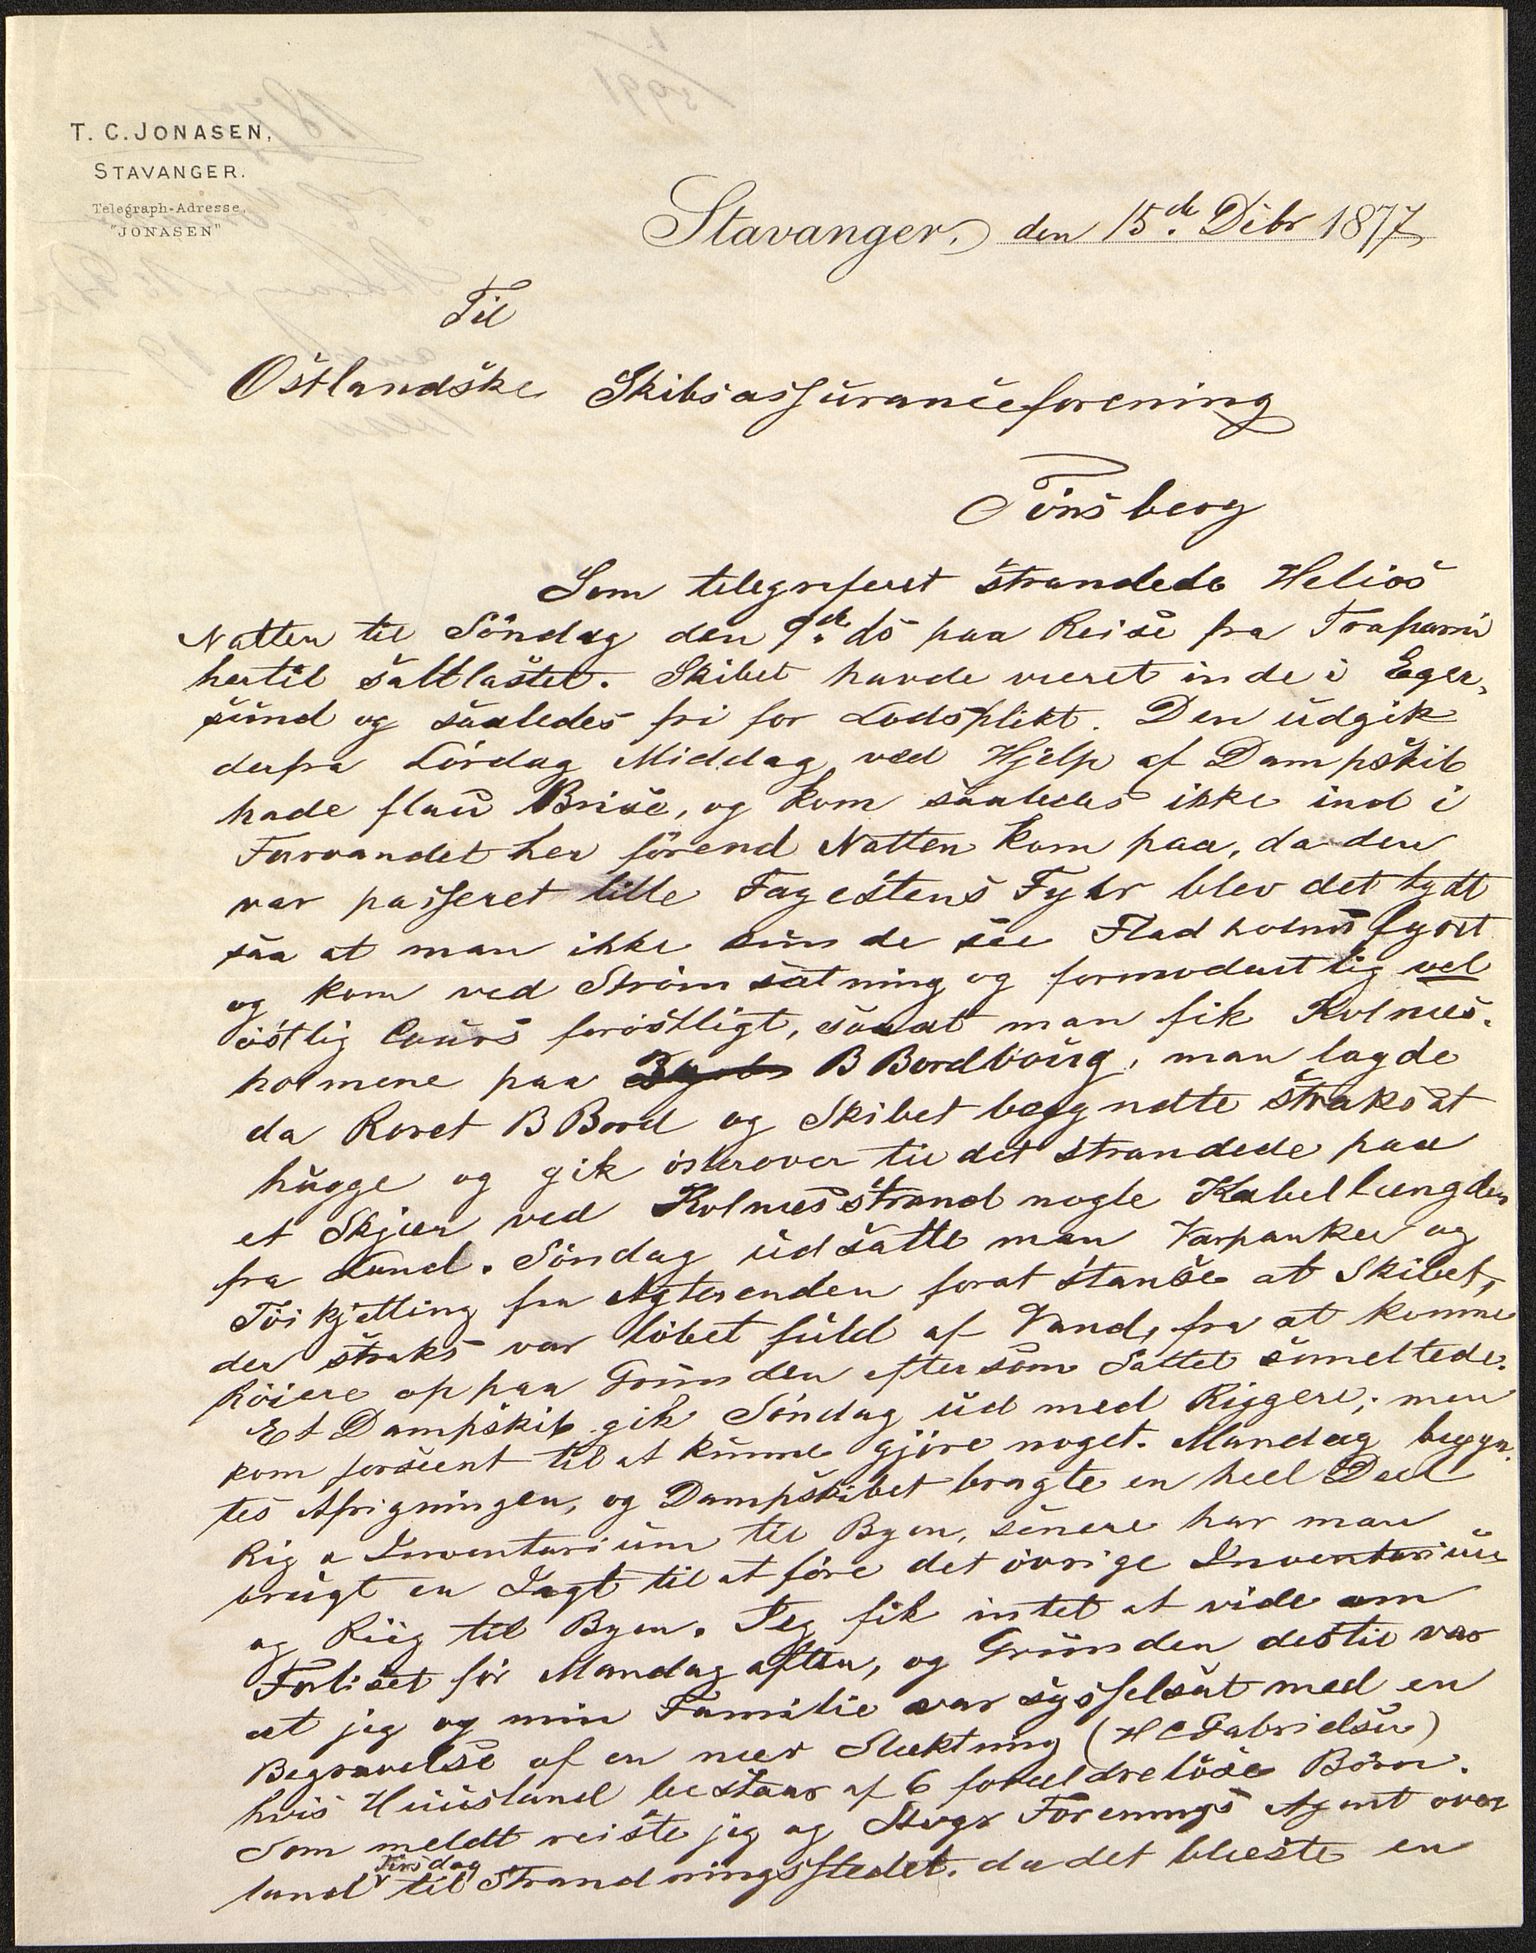 T. C. JONASEN,
STAVANGER.
Telegraph-Adresse.
"JONASEN"
Stavanger, den 15de Dcbr 1877
Til
Östlandske Skibsassuranceforening
Tönsberg
Som telegreferet strandede Helios
Natten til Söndag den 9de ds paa Reise fra Trapani
hertil saltlastet. Skibet havde været inde i Eger-
sund og saaledes fri for Lodsplikt. Den udgik
derfra Lördag Middag ved Hjelp af Dampskib
hade flau Brise, og kom saaledes ikke ind i
Farvandet her förend Natten kom paa, da den
var passeret lille Fagestens Fyhr blev det tydt
saa at man ikke kunde see Fladholms fyret
og kom ved Strömsætning og formodentlig vel
östlig Cours forøstligt, saaat man fik Kolnes-
holmene paa B Bordboug, man lagde
da Roret B Bord og Skibet begyndte straks at
hugge og gik österover til det strandede paa
et Skjær ved Kolnesstrand nogle Kabellængder
fra Land. Söndag udsatte man Varpanker og
Töikjetting fra Agterenden forat standse at Skibet,
der straks var löbet fuld af Vand, fra at komme
höiere op paa Grunden eftersom Saltet smeltede.
Et Dampskib gik Söndag ud med Riggere, men
kom forseent til at kunne gjöre noget. Mandag begyn-
tes Afrigningen, og Dampskibet bragte en heel Deel
Rig & Inventarium til Byen, senere har man
brugt en Jagt til at före det övrige Inventarium
og Riig til Byen. Jeg fik intet at vide om
Forliset för Mandag aften, og Grunden dertil var
at jeg og min Familie var sysselsat med en
Begravelse af en nær Slektning (H C Gabrielsen)
hvis Huusstand bestaar af 6 forældrelöse Börn.
Som meldt reiste jeg og Stvgr Forenings Agent over
land Tirsdag til Strandningsstedet. da det blæste en